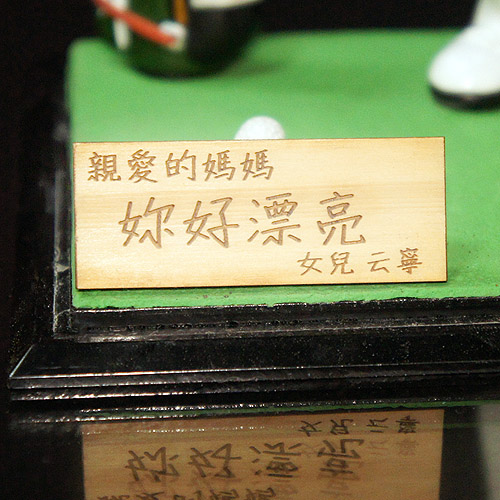 親愛的媽媽
妳好漂亮
女兒 云寧